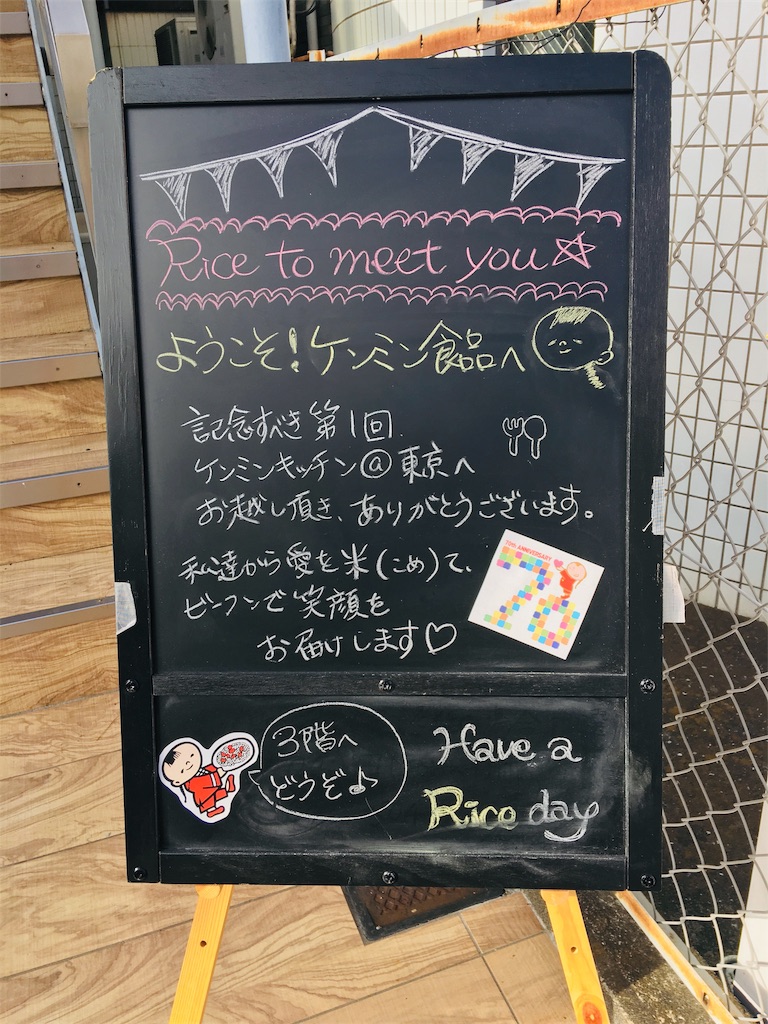 Rice to meet you☆
ようこそ!ケンミン食品へ
記念すべき第1回
ケンミンキッチン@東京へ
お越し頂き、ありがとうございます。
私達から愛を米(こめ)て、
ビーフンで笑顔を
お届けします♡
70TH ANNIVERSARY
70
3階へ
どうぞ♪
Have a
Rice day